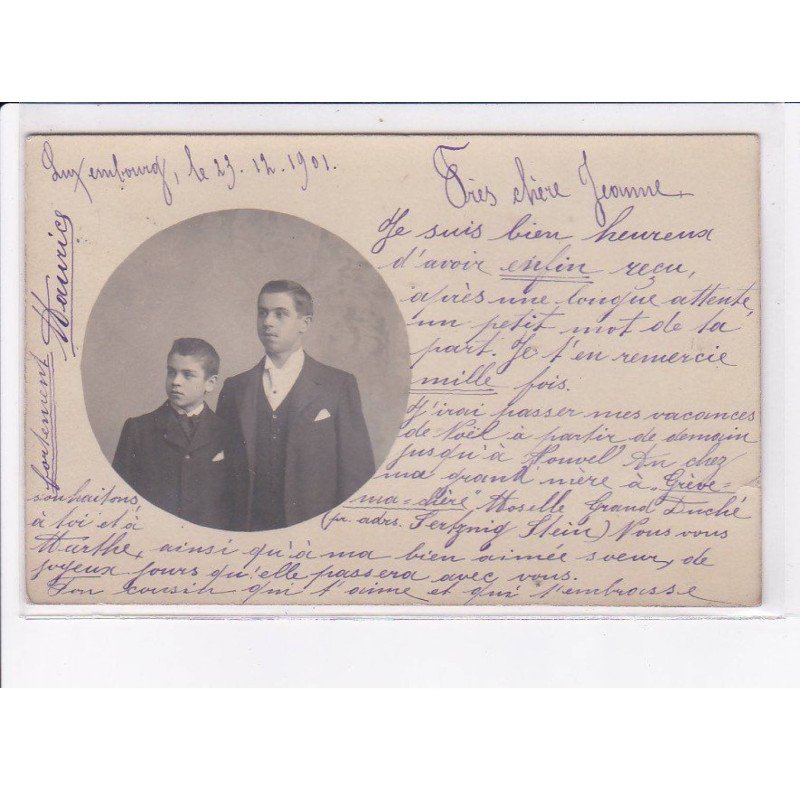 Luxembourg, le 23.12.1901.
Très chère Jeanne
Je suis bien heureux
d'avoir enfin reçu,
après une longue attente,
un petit mot de ta
part. Je t'en remercie
mille fois.
J'irai passer mes vacances
de Noël à partir de demain
jusqu'à Nouvel An chez
ma grand mère à "Grève-
ma-chère" Moselle Grand Duché
(pr. adrs. Stein) Nous vous
souhaitons
à toi et à
Marthe, ainsi qu'à ma bien aimée sœur, de
joyeux jours qu'elle passera avec vous.
Ton cousin qui t'aime et qui t'embrasse
fortement Maurice